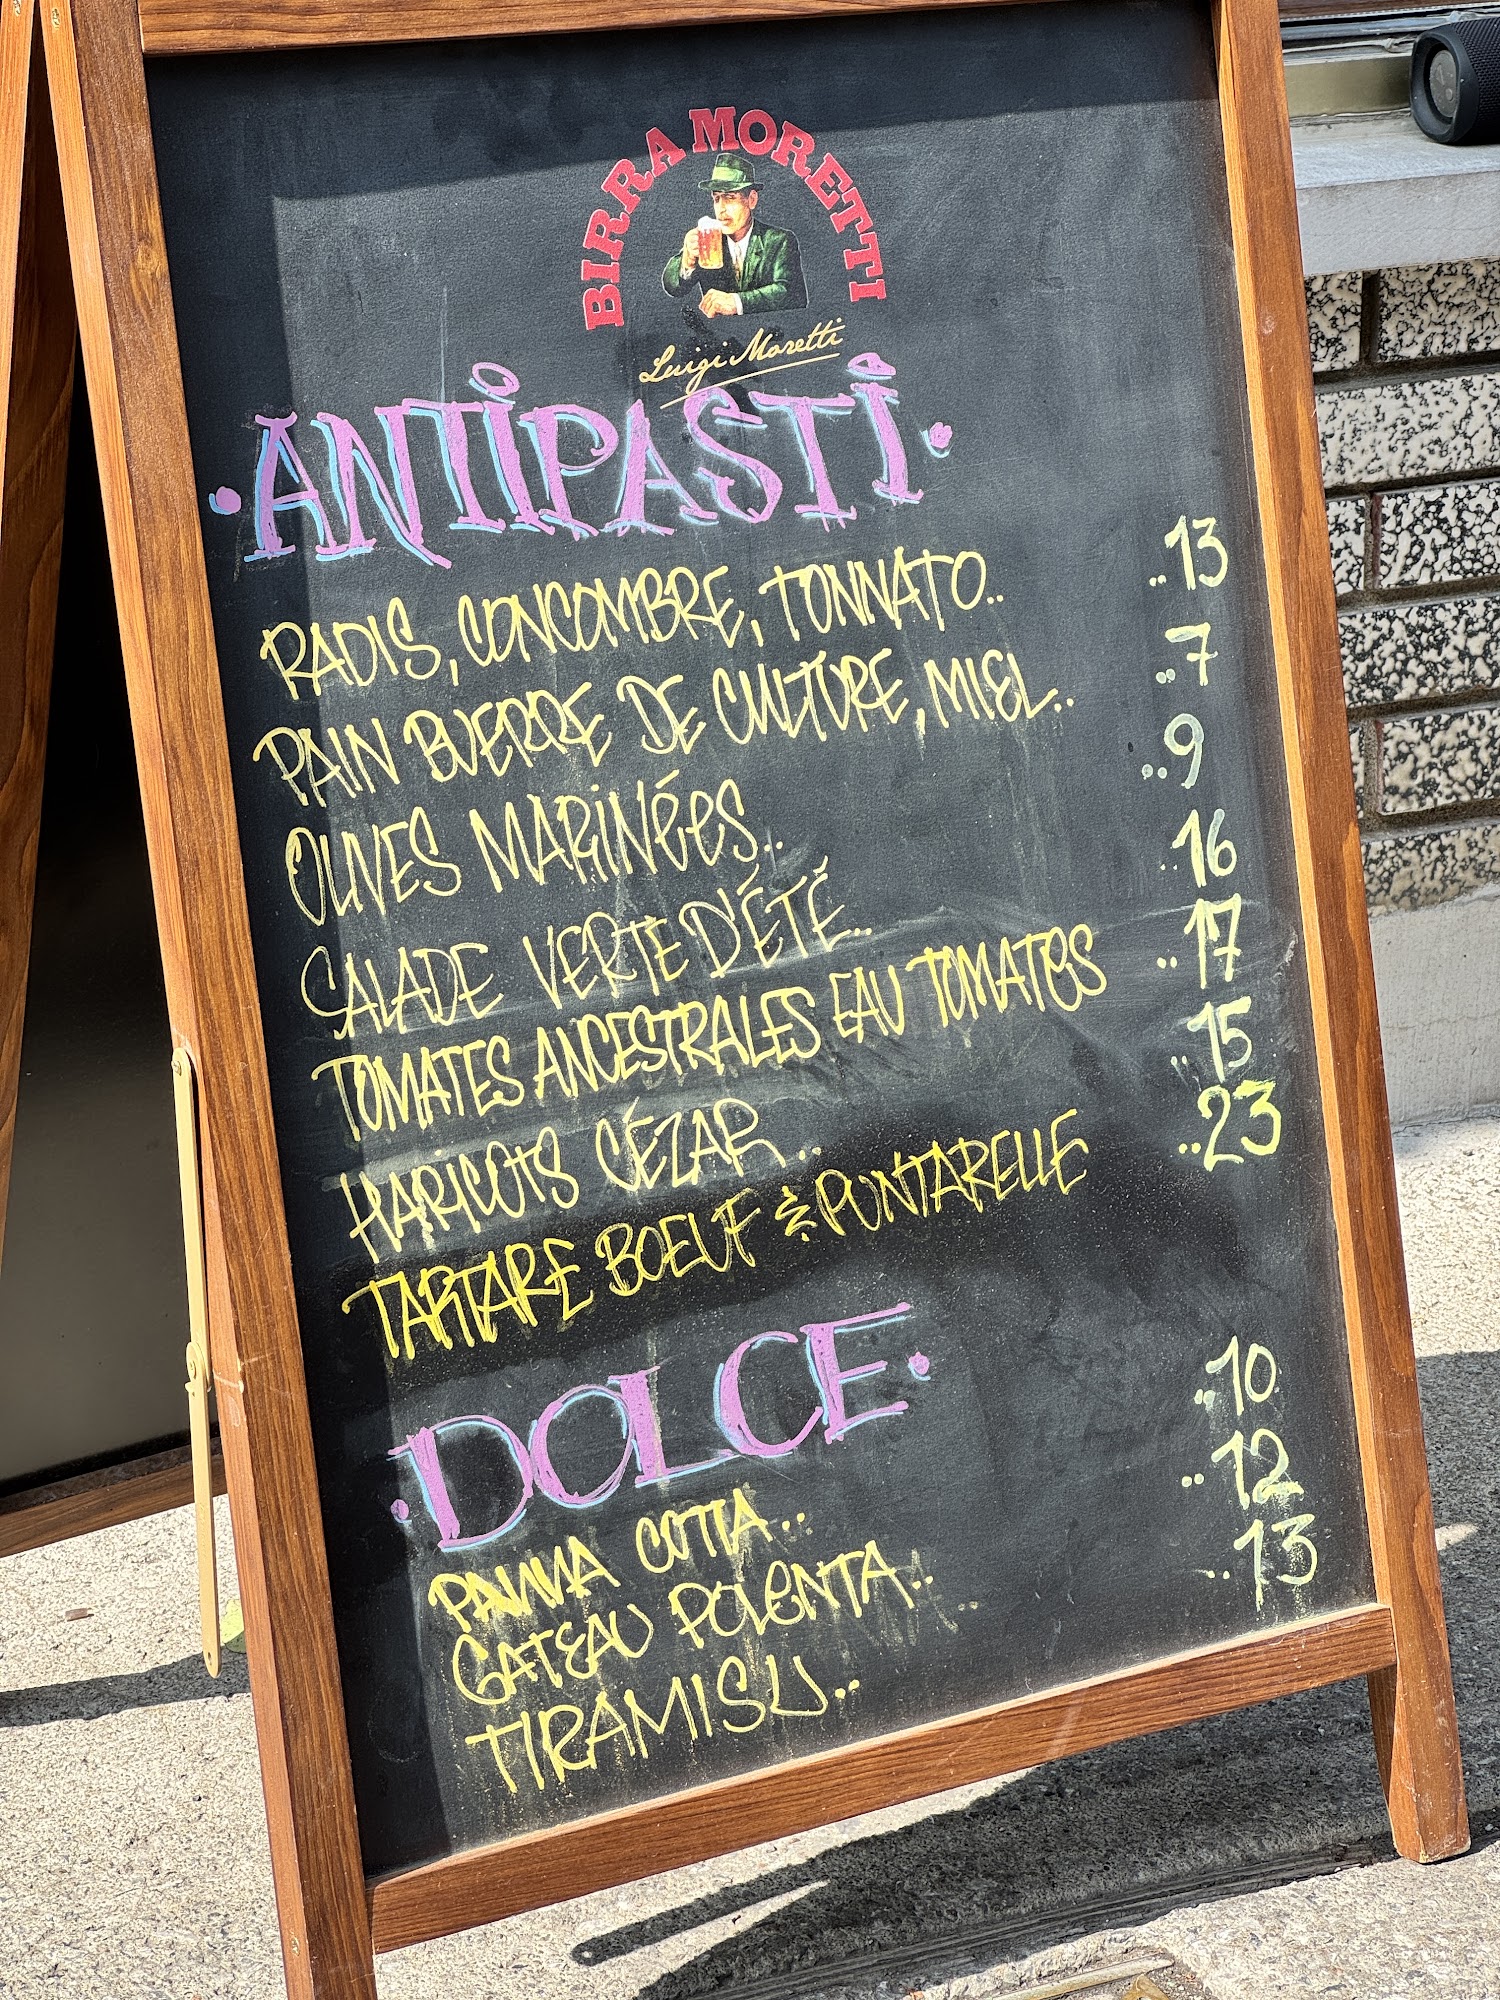 BIRRA MORETTI
Luigi Moretti
·ANTIPASTI·
RADIS, CONCOMBRE, TONNATO.. ..13
PAIN BUERRE DE CULTURE, MIEL.. ..7
OLIVES MARINÉES.. ..9
SALADE VERTE D'ÉTÉ.. ..16
TOMATES ANCESTRALES EAU TOMATES ..17
HARICOTS CÉZAR.. ..15
TARTARE BOEUF & PUNTARELLE ..23
·DOLCE·
PANNA COTTA.. ..10
GATEAU POLENTA.. ..12
TIRAMISU.. ..13